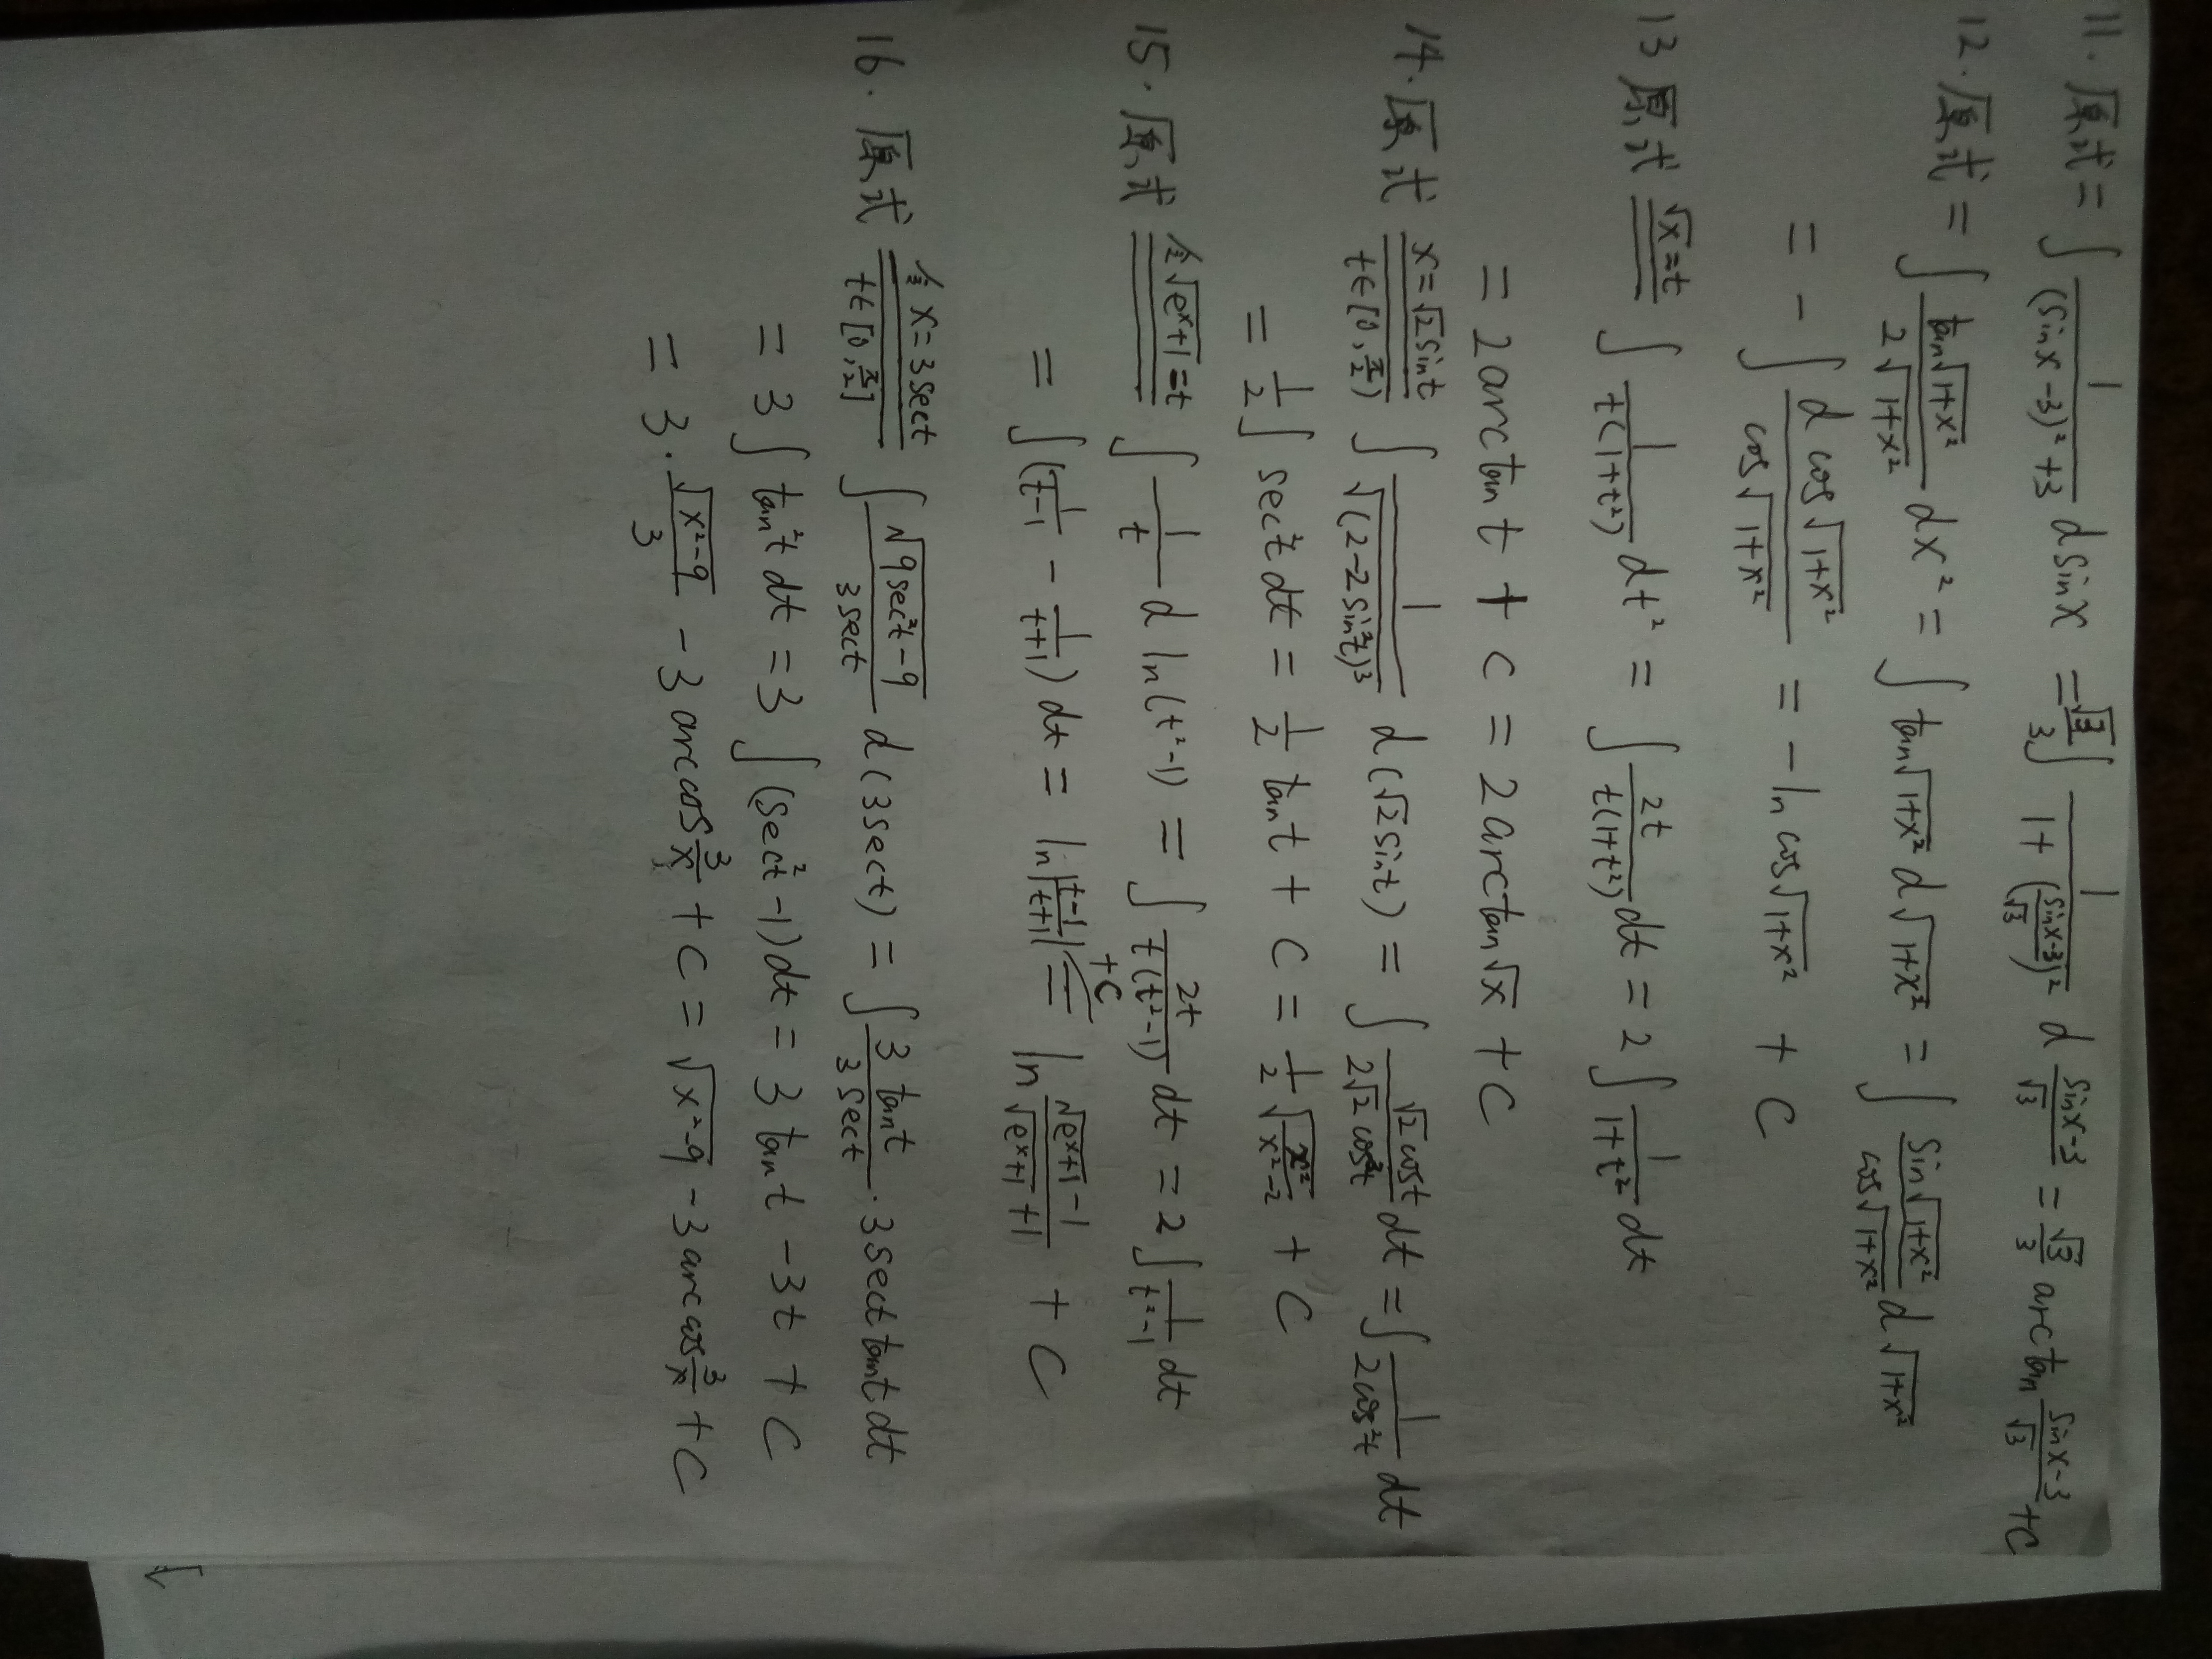 11. 原式 = ∫ 1/((sinx-3)²+3) dsinx = √3/3 ∫ 1/(1+((sinx-3)/√3)²) d (sinx-3)/√3 = √3/3 arctan (sinx-3)/√3 + C
12. 原式 = ∫ tan√(1+x²)/(2√(1+x²)) dx² = ∫ tan√(1+x²) d√(1+x²) = ∫ sin√(1+x²)/cos√(1+x²) d√(1+x²)
= - ∫ d cos√(1+x²)/cos√(1+x²) = -ln cos√(1+x²) + C
13 原式 √x=t ∫ 1/(t(1+t²)) dt² = ∫ 2t/(t(1+t²)) dt = 2 ∫ 1/(1+t²) dt
= 2arctan t + C = 2arctan√x + C
14. 原式 x=√2sint t∈[0,π/2) ∫ 1/√((2-2sin²t)³) d(√2sint) = ∫ √2cost/(2√2cos³t) dt = ∫ 1/(2cos²t) dt
= 1/2 ∫ sec²t dt = 1/2 tant + C = 1/2 √(x²/(x²-2)) + C
15. 原式 令√(eˣ+1)=t ∫ 1/t d ln(t²-1) = ∫ 2t/(t(t²-1)) dt = 2∫ 1/(t²-1) dt
= ∫(1/(t-1) - 1/(t+1)) dt = ln|(t-1)/(t+1)| +C = ln (√(eˣ+1)-1)/(√(eˣ+1)+1) + C
16. 原式 令x=3sect t∈[0,π/2] ∫ √(9sec²t-9)/3sect d(3sect) = ∫ 3tant/3sect · 3sect tant dt
= 3∫tan²t dt = 3∫(sec²t-1)dt = 3tant - 3t + C
= 3·√(x²-9)/3 - 3arccos 3/x + C = √(x²-9) - 3arccos 3/x + C